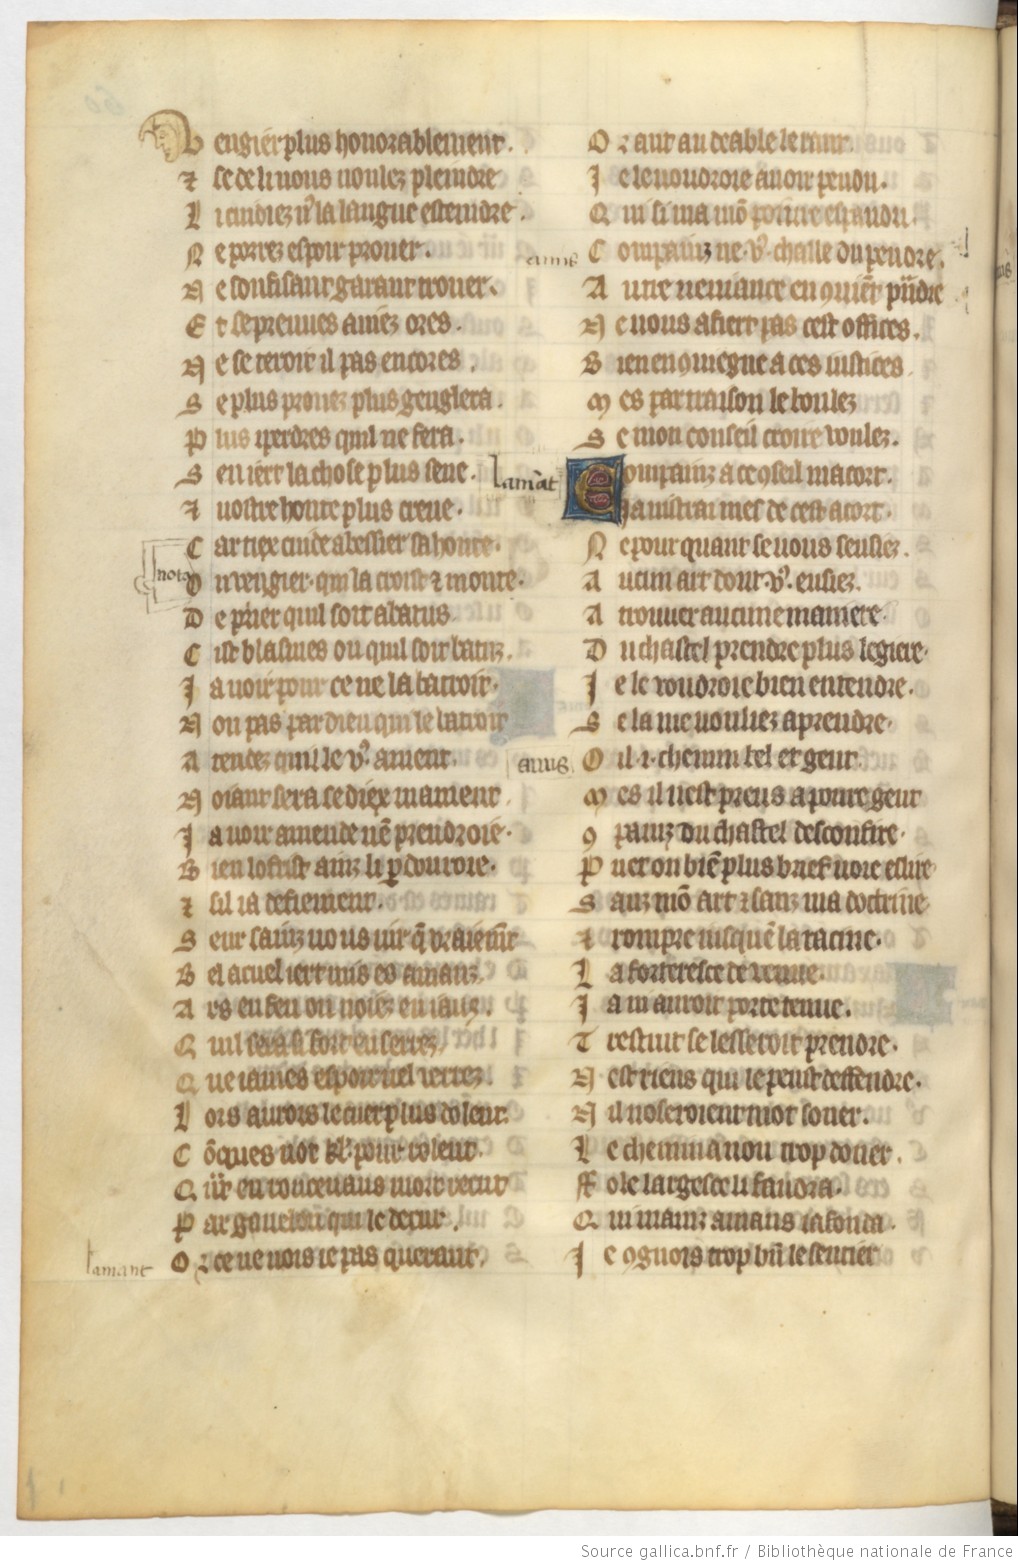 Vengier plus honorablement.
⁊ se de li vous voulez pleindre
Li cuidiez vͦ la langue esteindre.
Ne porrez espoir prouer.
Ne soufisant garant trouer.
Et se preuues auiez ores.
Ne se teroit il pas encores.
Se plus prouez plus genglera.
Plus i perdres quil ne fera.
Sen iert la chose plus seue.
⁊ vostre honte plus creue.
Car tiex cuide abessier sa honte.
Ou vengier. qui la croist ⁊ monte.
De prier quil soit abatus
Cist blasmes ou quil soit batuz.
Ja uoir pour ce ne la batroit.
Non pas par dieu qui le batroit
Atendez quil le vͦ. ament.
Noiant sera se diex mament
Ja uoir amende nē prendroie.
Bien loffrist ainz li ꝑdonroie.
⁊ sil i a defiement.
Seur sainz uous iur q̄ vraiem̄t
Bel acuel iert mis es aniauz
Ars en feu ou noiez en iauz.
Quil sera si fort enserrez
Que iames espoir nel verrez.
Lors aurois le cuer plus dolent.
Cōques not kł. pour rolent.
Qn̄t en roncevaus mort recut
Par guenelon qui le decut.
Or ce ne uois ie pas querant.
Or aut au deable le rant
Je le voudroie auoir pendu.
Qui si ma mō poiure espandu.
Compainz ne. vͦ. chaille du pendre.
Autre veniance en ꝯuiēt prēdre
Ne vous afiert pas cest offices.
Bien en ꝯuiegne a ces iustices.
Mes par traison le boulez
Se mon conseil croire voulez.
Compainz a ce ꝯseil macort.
Ja nistrai mes de cest acort.
Ne pour quant se vous seusiez.
Aucun art dont. vͦ. eusiez
A trouuer aucune maniere.
Du chastel prendre plus legiere.
Je le voudroie bien entendre.
Se la me vouliez aprendre.
Oil .i. chemin bel et gent
Mes il nest preus a poure gent
ꝯpainz du chastel desconfire.
Puet on biē plus brief uoie eslire
Sanz mō art ⁊ sanz ma doctrine
⁊ rompre iusquē la racine.
La forteresce de venue.
Ja ni auroit porte tenue.
Trestuit se lesseroit prendre.
Nest riens qui le peust deffendre.
Nil noseroient mot soner.
Le chemin a non trop doner.
Fole largesce li fanora.
Qui mainz amans i afonda.
Je ꝯgnois trop bn̄ le sentier
amis
lamāt
nota
amis
lamant
Source gallica.bnf.fr / Bibliothèque nationale de France